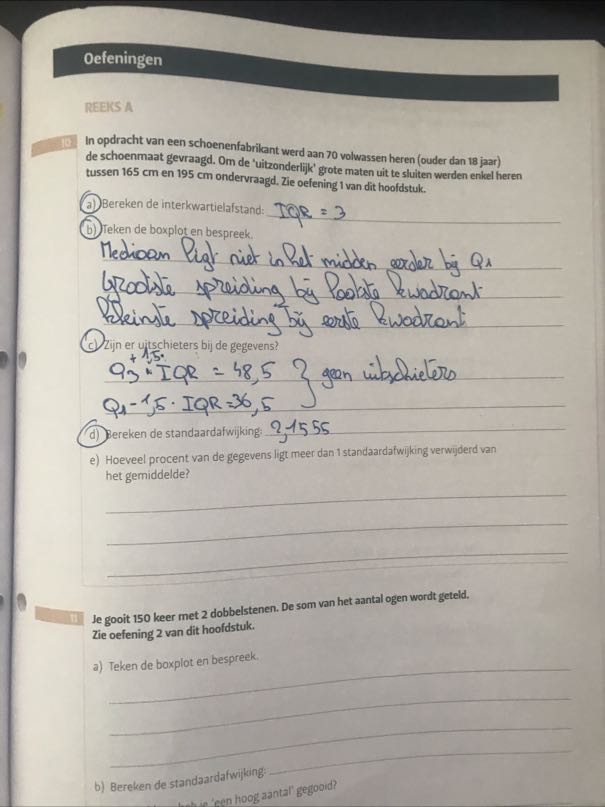 Oefeningen
REEKS A
10 In opdracht van een schoenenfabrikant werd aan 70 volwassen heren (ouder dan 18 jaar)
de schoenmaat gevraagd. Om de 'uitzonderlijk' grote maten uit te sluiten werden enkel heren
tussen 165 cm en 195 cm ondervraagd. Zie oefening 1 van dit hoofdstuk.
a) Bereken de interkwartielafstand: IQR = 3
b) Teken de boxplot en bespreek.
Mediaan ligt niet in het midden eerder bij Q1
Grootste spreiding bij laatste kwadrant
kleinste spreiding bij eerste kwadrant
c) Zijn er uitschieters bij de gegevens?
Q3 + 1,5 · IQR = 48,5 } geen uitschieters
Q1 - 1,5 · IQR = 36,5
d) Bereken de standaardafwijking: 2,1555
e) Hoeveel procent van de gegevens ligt meer dan 1 standaardafwijking verwijderd van
het gemiddelde?
11 Je gooit 150 keer met 2 dobbelstenen. De som van het aantal ogen wordt geteld.
Zie oefening 2 van dit hoofdstuk.
a) Teken de boxplot en bespreek.
b) Bereken de standaardafwijking:
'een hoog aantal' gegooid?